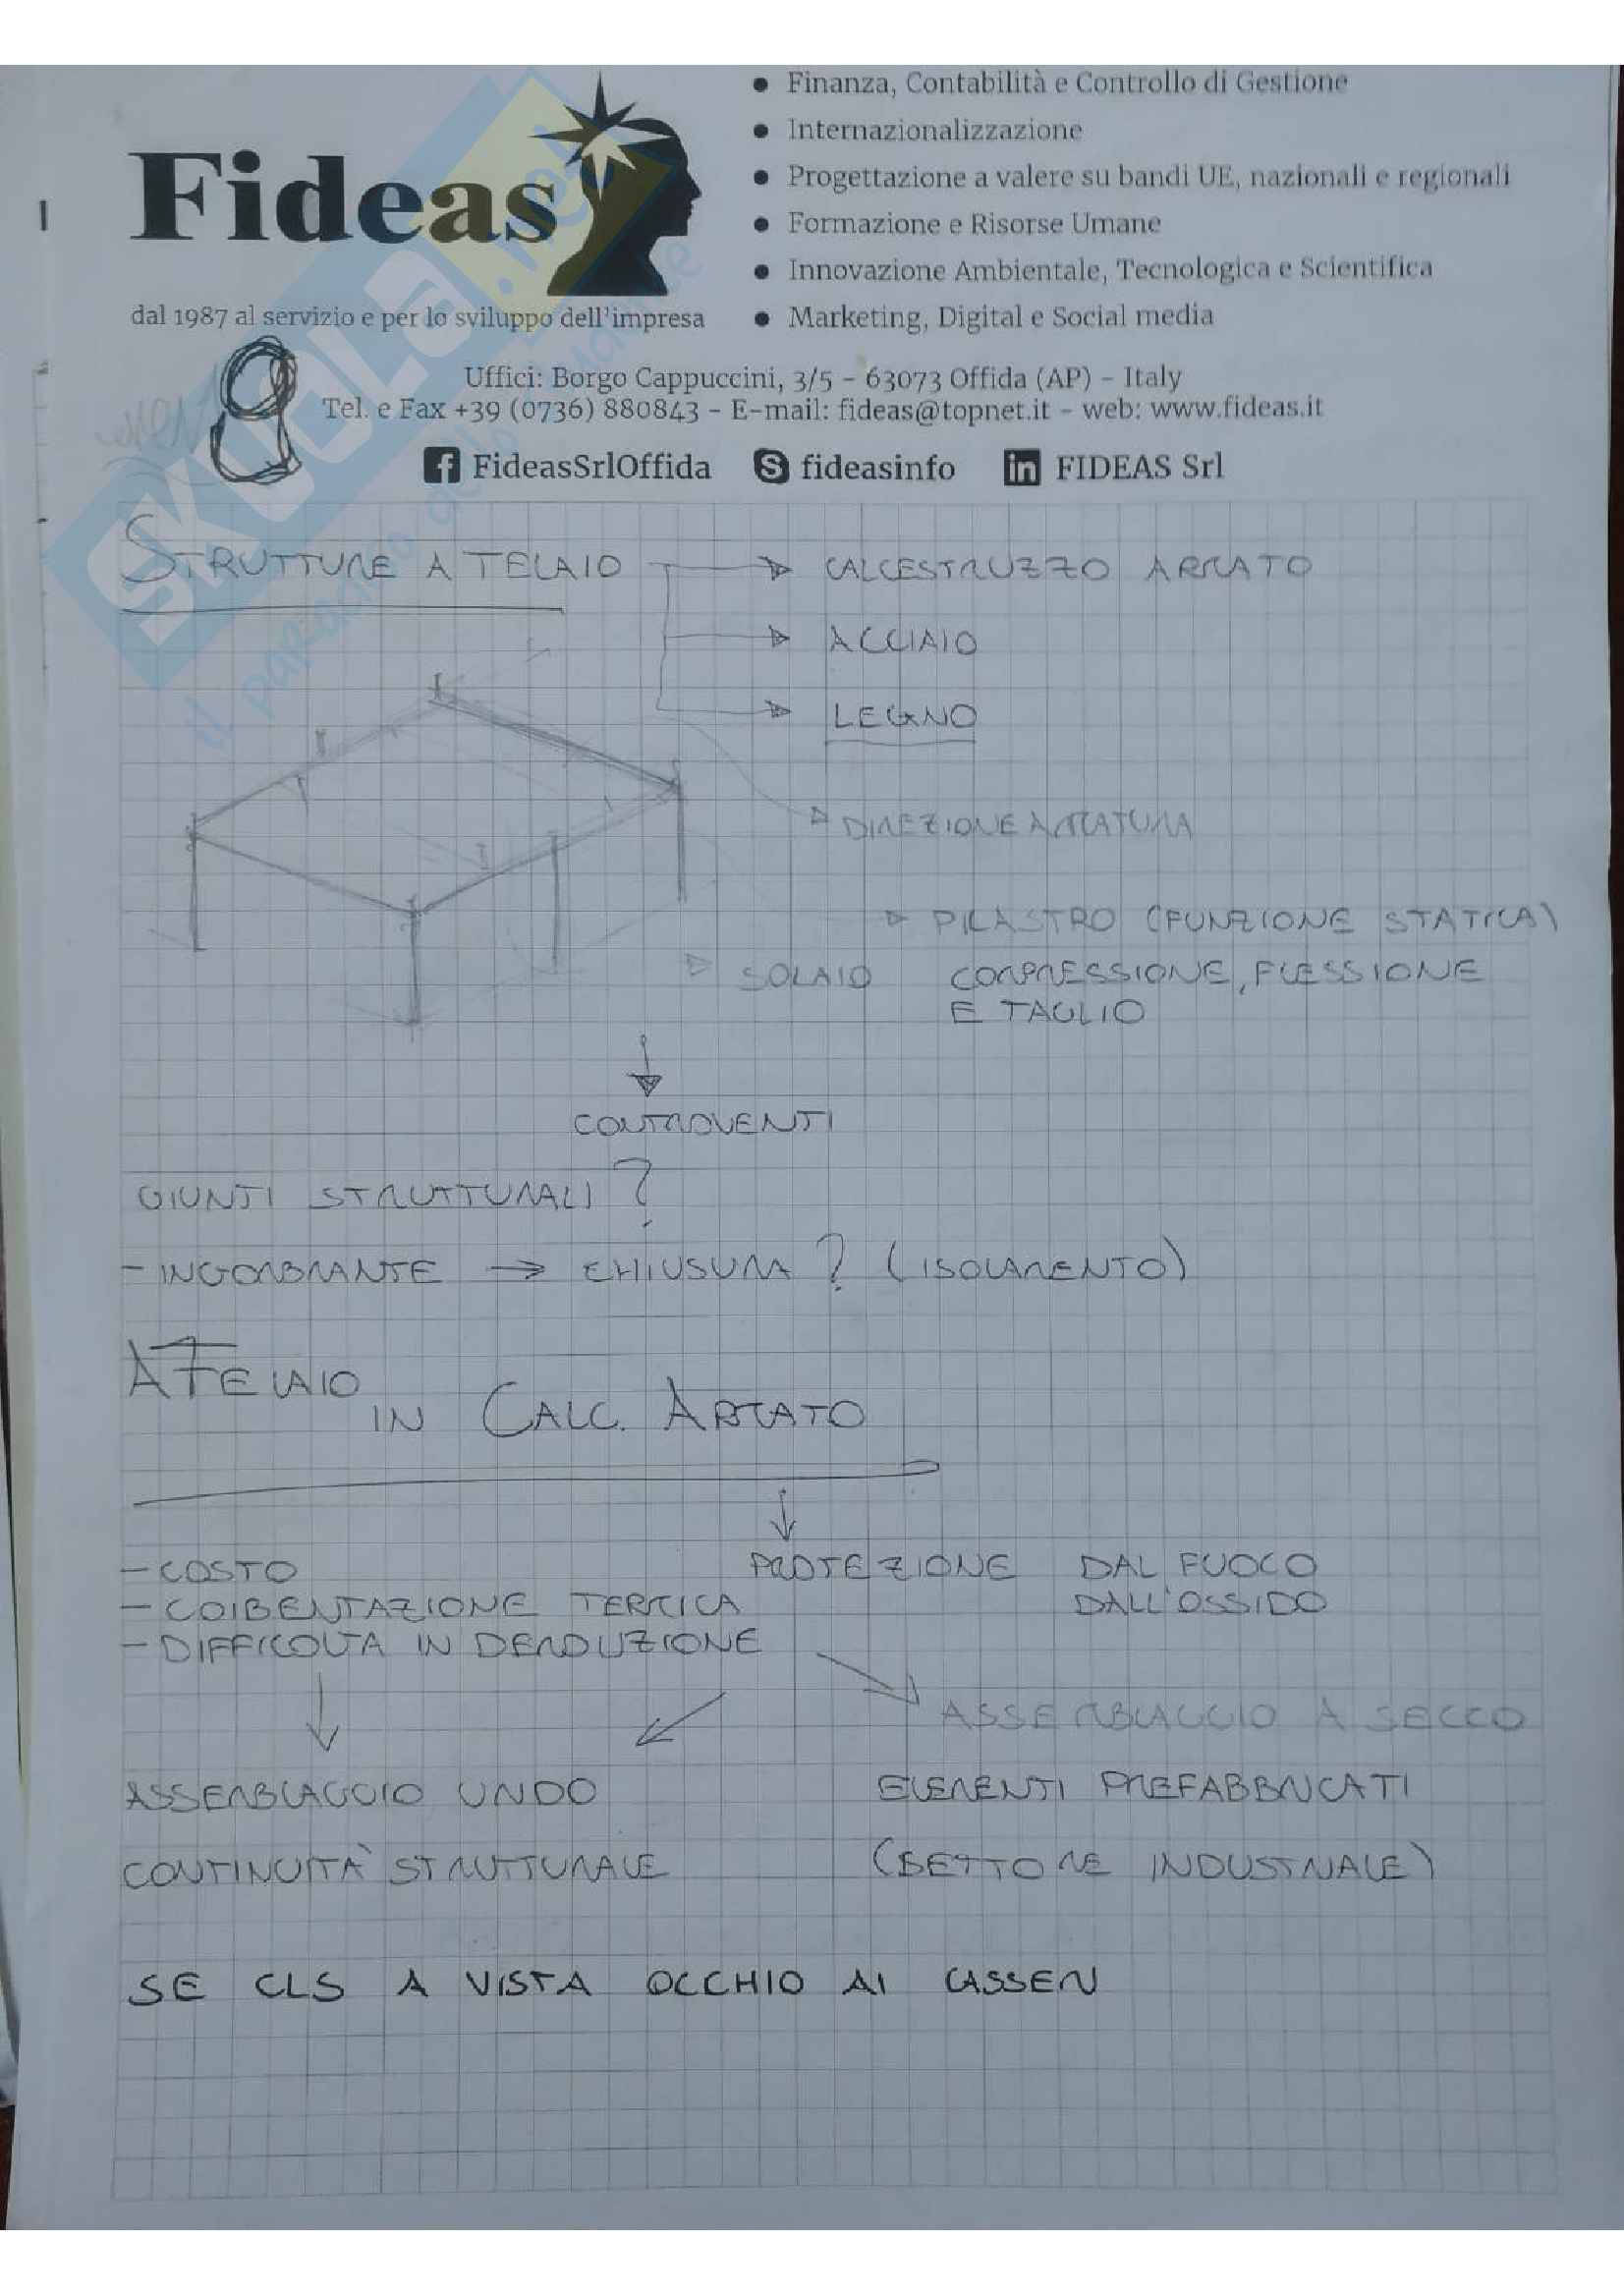 Finanza, Contabilità e Controllo di Gestione
Internazionalizzazione
Progettazione a valere su bandi UE, nazionali e regionali
Formazione e Risorse Umane
Innovazione Ambientale, Tecnologica e Scientifica
Marketing, Digital e Social media
Fideas
dal 1987 al servizio e per lo sviluppo dell'impresa
8
Uffici: Borgo Cappuccini, 3/5 - 63073 Offida (AP) - Italy
Tel. e Fax +39 (0736) 880843 - E-mail: fideas@topnet.it - web: www.fideas.it
FideasSrlOffida fideasinfo FIDEAS Srl
SKUOLA.net
il paradiso dello studente
STRUTTURE A TELAIO → CALCESTRUZZO ARMATO
→ ACCIAIO
→ LEGNO
DIREZIONE ARMATURA
PILASTRO (FUNZIONE STATICA)
SOLAIO COMPRESSIONE, FLESSIONE
E TAGLIO
CONTROVENTI
GIUNTI STRUTTURALI ?
- INGOMBRANTE → CHIUSURA ? (ISOLAMENTO)
A TELAIO
IN CALC. ARMATO
- COSTO PROTEZIONE DAL FUOCO
- COIBENTAZIONE TERMICA DALL'OSSIDO
- DIFFICOLTA IN DEMOLIZIONE
ASSEMBLAGGIO A SECCO
ASSEMBLAGGIO UMIDO ELEMENTI PREFABBRICATI
CONTINUITÀ STRUTTURALE (SETTORE INDUSTRIALE)
SE CLS A VISTA OCCHIO AI CASSERI